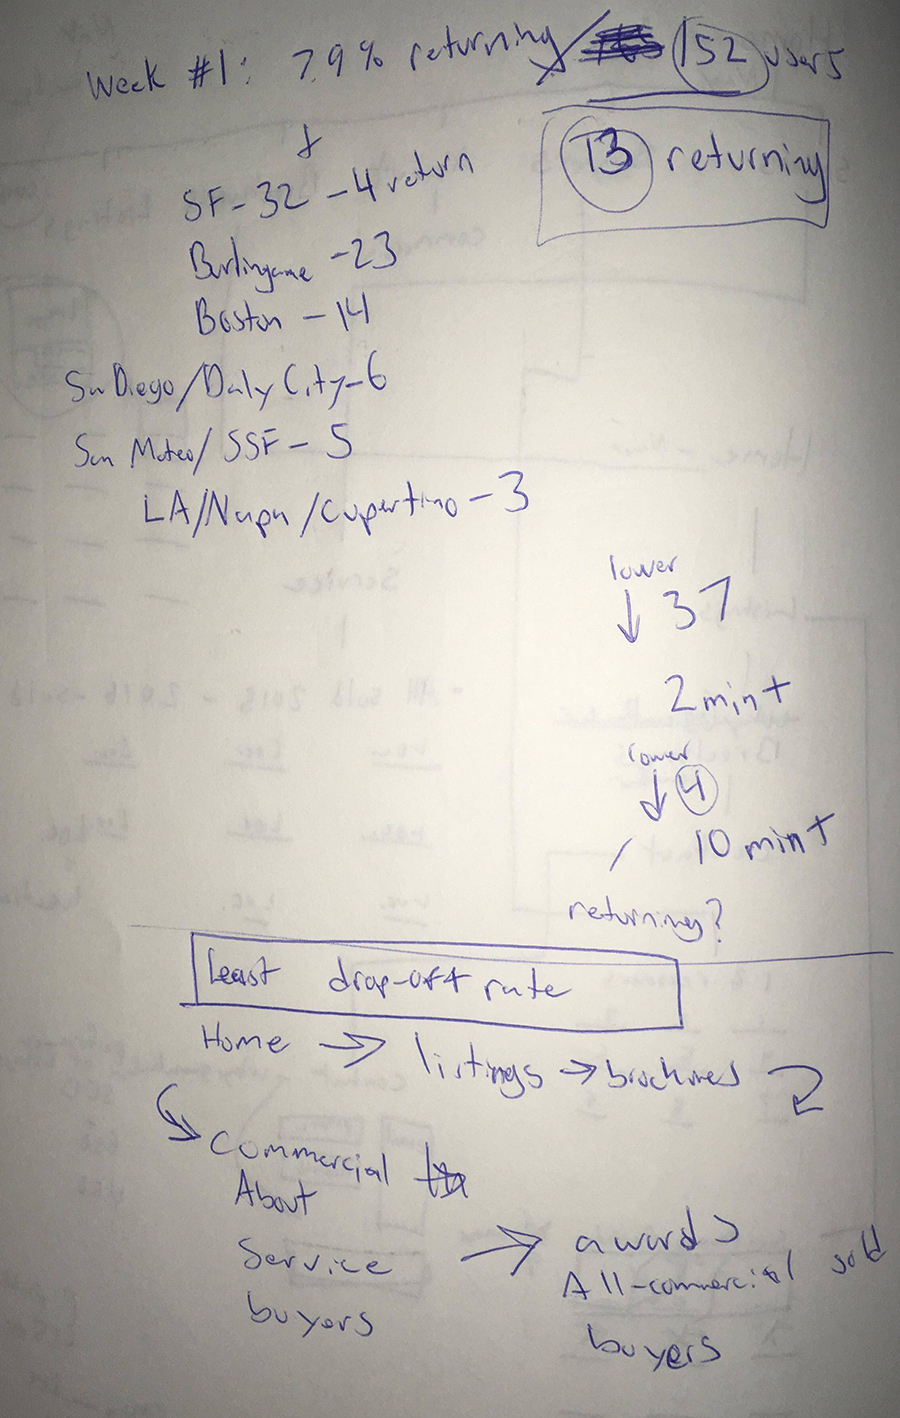 Week #1: 7.9% returning / 152 users
13 returning
SF - 32 - 4 return
Burlingame - 23
Boston - 14
San Diego/Daly City - 6
San Mateo/SSF - 5
LA/Napa/Cupertino - 3
lower
↓ 37
2 min +
lower
↓ 4
10 min +
/
returning?
Least drop-off rate
Home → listings → brochures
Commercial
About
Service → awards
All-commercial sold
buyers
buyers